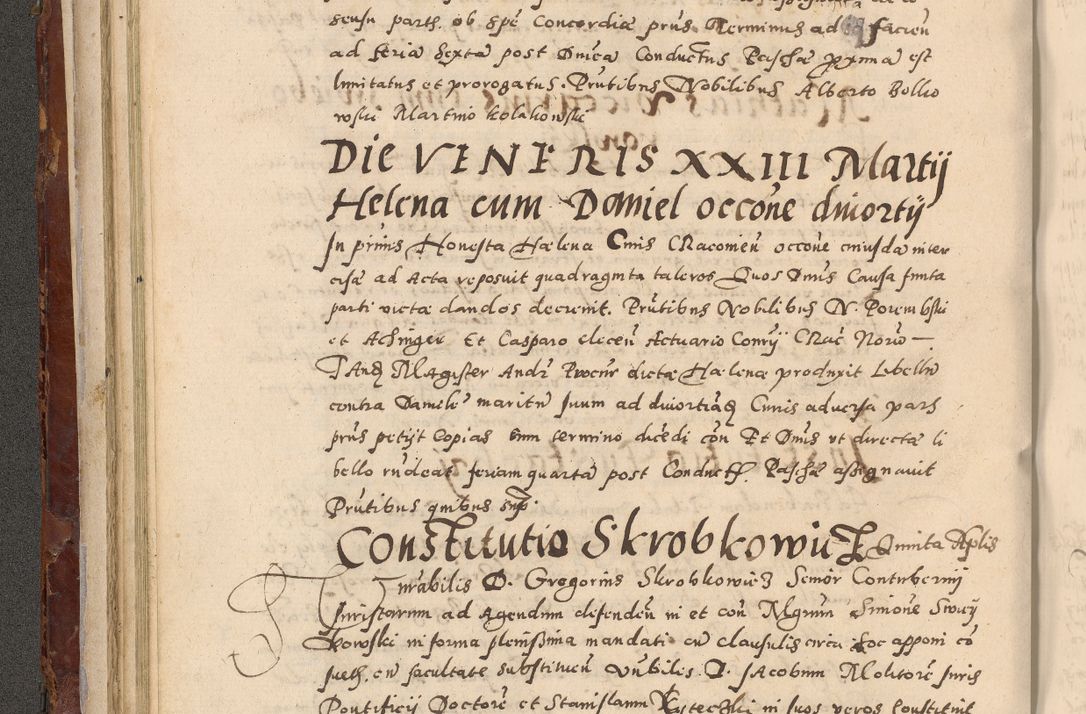 sensu parth. ob spē Concordiæ prūs Terminus ad facieū
ad feria sexta post Dnica Conductus Paschæ proxima est
limitatus et prorogatus. Prutibus Nobilibus Alberto Bolko
wski Martino Kolakowski
Die VENERIS XXIII Martij
Helena cum Daniel occōne diuortij
In primis Honesta Hælena Ciuis CRacouien occōne cuiusda inter
cisæ ad Acta reposuit quadraginta taleros Quos Dnus Causa finita
parti victæ dandos decreuit. Prūtibus Nobilibus N. Porembski
et Achinger Et Casparo cleceū Actuario Conrij CRac Noriō
Tandē Magister Andr Procur dictæ Hælenæ produxit Libellū
contra Danielē maritū suum ad diuortiāq Cuius aduersa pars
prūs petijt Copias cum termino dicēdi cōn Et Dnus vt directæ li
bello rūdeat feriam quartā post Conduct. Paschæ assignauit
Prūtibus quibus sup.
Constitutio Skrobkowicz Quinta Aplis
Vnrabilis D. Gregorius Skrobkowicz Senior Contuberny
Juristarum ad Agendum defendeū in et con Mgrum Simone Swiecy
kowski in forma plenissima mandati cū clausulis circa hoc apponi cō
sueth. cū facultate substitueū Vnrbilis. D. JAcobum Molitorē Juris
Pontificij Doctorē et Stanislaum Kyteczki in suos veros Constituit